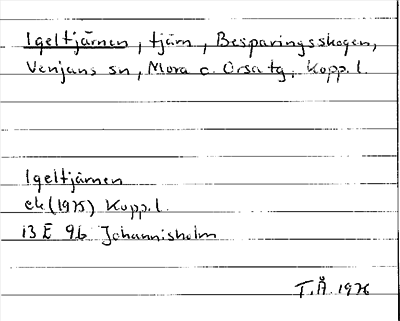 Igeltjärnen, tjärn, Besparingsskogen,
Venjans sn, Mora o. Orsa tg, Kopp. l.
Igeltjärnen
ek (1975) Kopp. l.
13 E 9b Johannisholm
T. Å. 1976